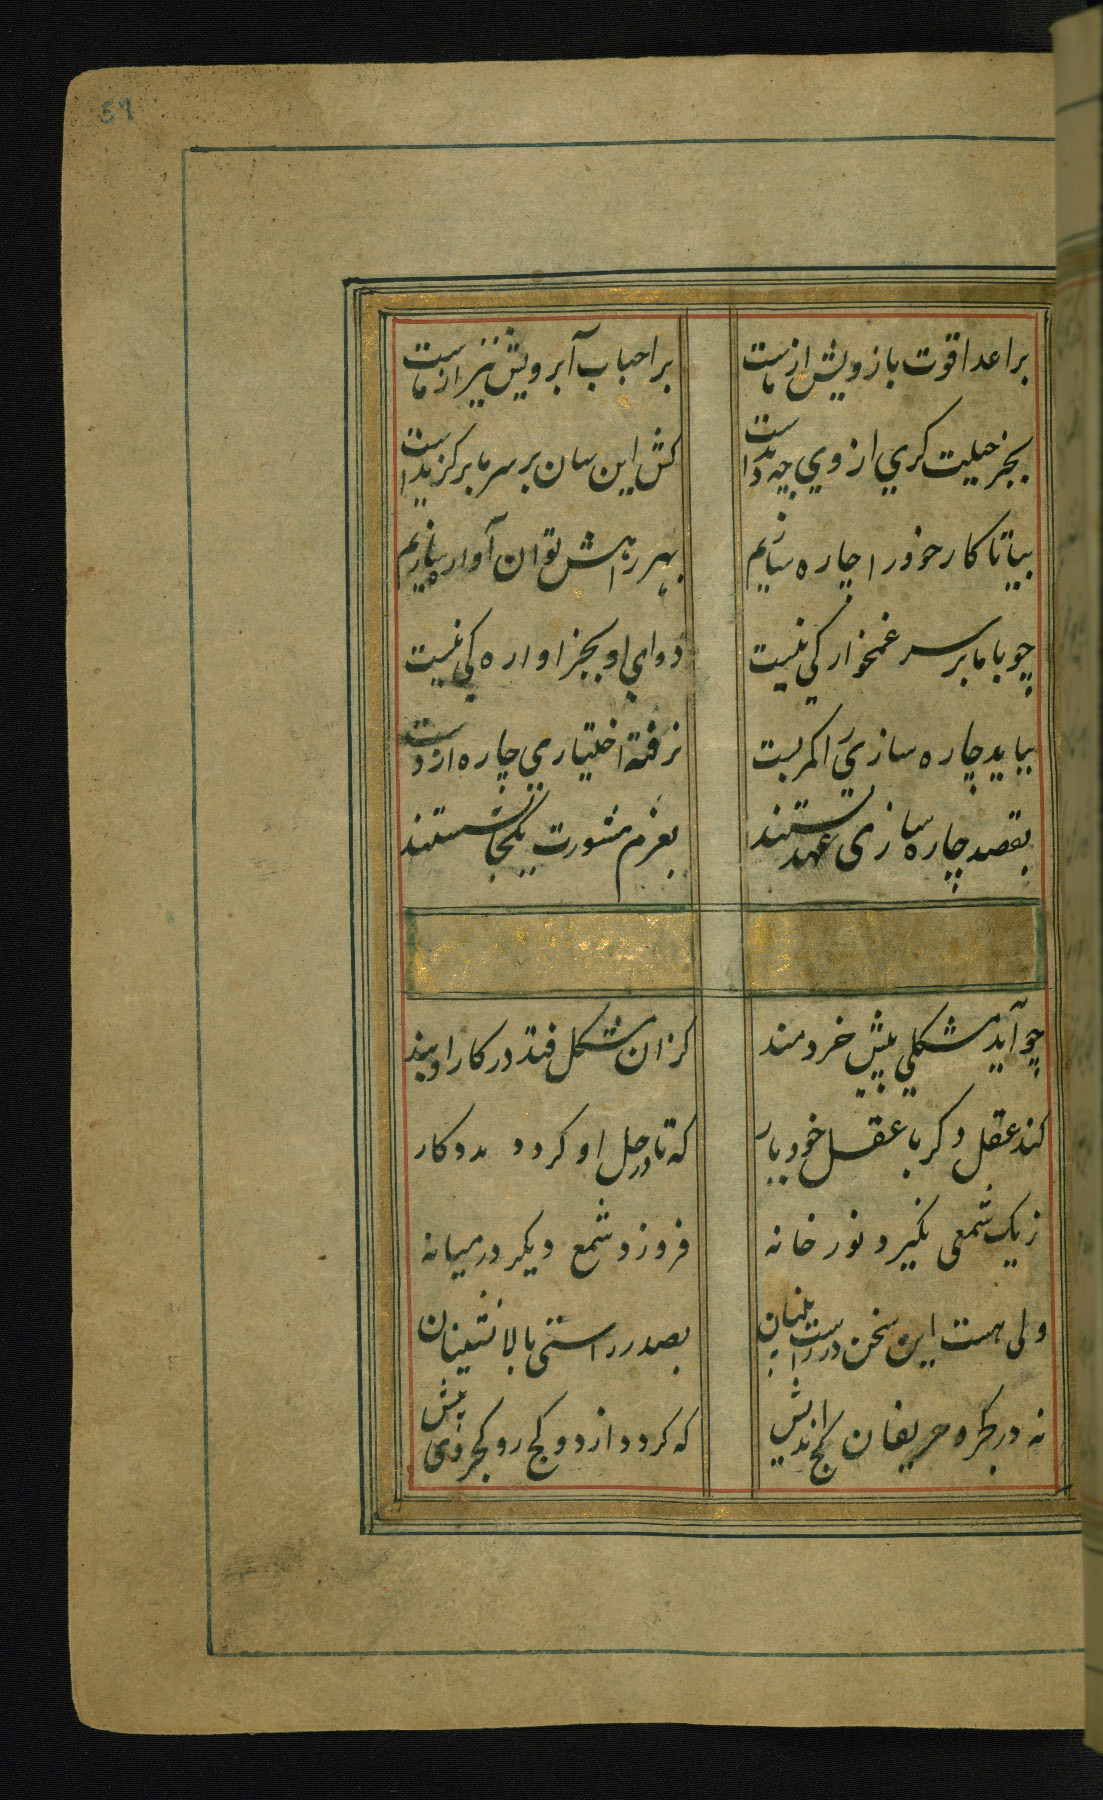 59
بر اعدا قوت بازویش از ماست
بر احباب آبرویش نیز از ماست
بجز حیلت کری از وی چه دیدست
کش این سان بر سر ما برکزیدست
بیا تا کار خود را چاره سازیم
بهر راهش توان آواره سازیم
چو با ما بر سر غمخوارکی نیست
دوای او بجز اوارەکی نیست
بباید چاره سازی را کمر بست
نرفته اختیاری چاره از دست
بقصد چاره سازی عهد بستند
بعزم مشورت یکجا نشستند
چو آید مشکلی پیش خردمند
کزان مشکل فتد در کار او بند
کند عقل دکر با عقل خود یار
که تا در حل او کردد مددکار
ز یک شمعی نکیرد نور خانه
فروزد شمع دیکر در میانه
ولی هست این سخن در راست بینان
بصدر راستی بالا نشینان
نه در کج رو حریفان کج اندیش
که کردد از دو کج رو کجروی بیش